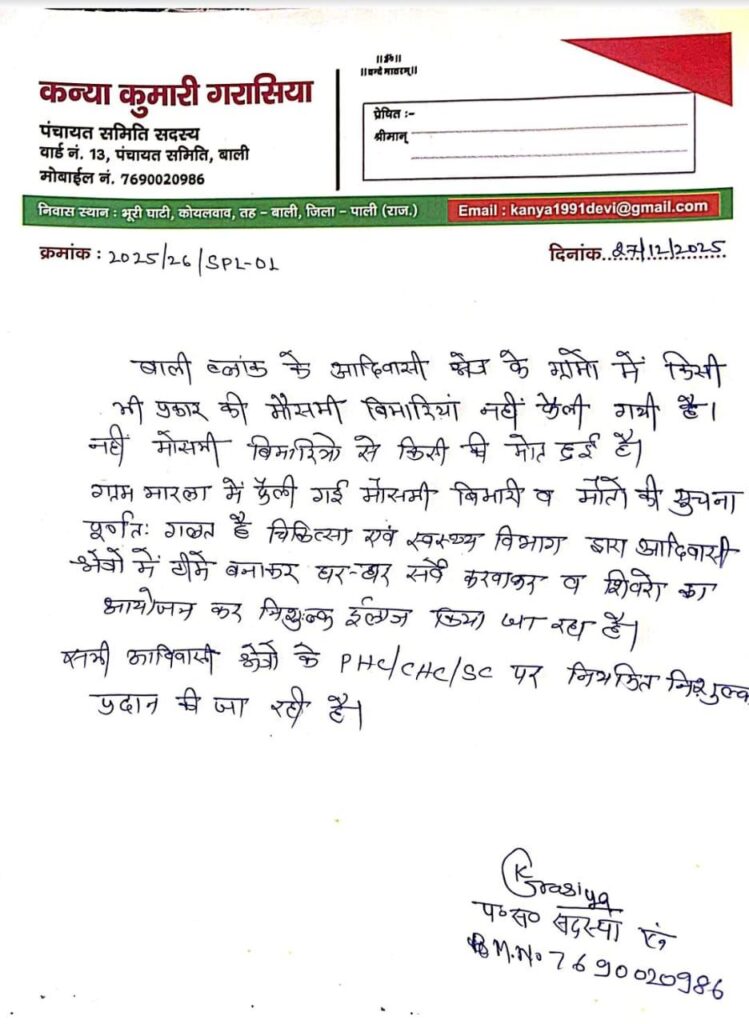 ||ॐ||
||वन्दे मातरम्||
कन्या कुमारी गरासिया
पंचायत समिति सदस्य
वार्ड नं. 13, पंचायत समिति, बाली
मोबाईल नं. 7690020986
प्रेषित :-
श्रीमान्
निवास स्थान : भूरी घाटी, कोयलवाव, तह - बाली, जिला - पाली (राज.)
Email : kanya1991devi@gmail.com
क्रमांक : 2025/26/SPL-01
दिनांक..27/12/2025
बाली ब्लांक के आदिवासी क्षेत्र के ग्रामो में किसी
भी प्रकार की मौसमी बिमारियां नहीं फैली गयी है।
नहीं मोसमी बिमारियो से किसी की मोत हुई है।
ग्राम भारला में फैली गई मोसमी बिमारी व मौतो की सुचना
पूर्णतः गलत है चिकित्सा एवं स्वास्थ्य विभाग द्वारा आदिवासी
क्षेत्रों में टीमे बनाकर घर-घर सर्वे करवाकर व शिविरो का
आयोजन कर निशुल्क ईलाज किया जा रहा है।
सभी आदिवासी क्षेत्रो के PHC/CHC/SC पर नियमित निशुल्क
प्रदान की जा रही है।
KGrasiya
प० स० सदस्या
M.No 7690020986